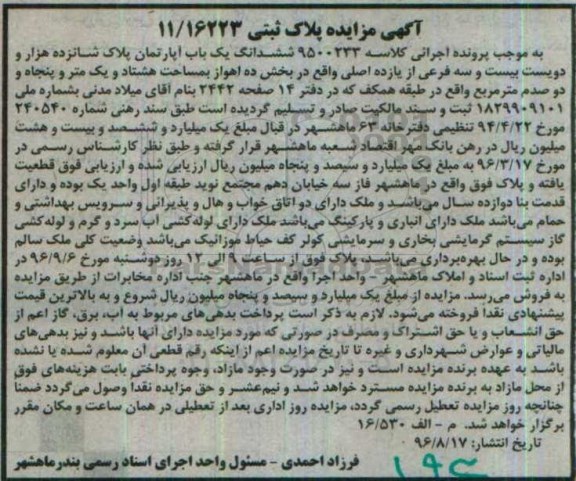 آگهی مزایده پلاک ثبتی ۱۱/۱۶۲۲۳
به موجب پرونده اجرائی کلاسه ۹۵۰۰۲۳۳ ششدانگ یک باب آپارتمان پلاک شانزده هزار و
دویست بیست و سه فرعی از یازده اصلی واقع در بخش ده اهواز بمساحت هشتاد و یک متر و پنجاه و
دو صدم مترمربع واقع در طبقه همکف که در دفتر ۱۴ صفحه ۲۴۴۲ بنام آقای میلاد مدنی بشماره ملی
۱۸۲۹۹۰۹۱۰۱ ثبت و سند مالکیت صادر و تسلیم گردیده است طبق سند رهنی شماره ۲۴۰۵۴۰
مورخ ۹۴/۴/۲۲ تنظیمی دفترخانه ۶۳ ماهشهر در قبال مبلغ یک میلیارد و ششصد و بیست و هشت
میلیون ریال در رهن بانک مهر اقتصاد شعبه ماهشهر قرار گرفته و طبق نظر کارشناس رسمی در
مورخ ۹۶/۳/۱۷ به مبلغ یک میلیارد و سیصد و پنجاه میلیون ریال ارزیابی شده و ارزیابی فوق قطعیت
یافته و پلاک فوق واقع در ماهشهر فاز سه خیابان دهم مجتمع نوید طبقه اول واحد یک بوده و دارای
قدمت بنا دوازده سال می‌باشد و ملک دارای دو اتاق خواب و هال و پذیرائی و سرویس بهداشتی و
حمام می‌باشد ملک دارای انباری و پارکینگ می‌باشد ملک دارای لوله‌کشی آب سرد و گرم و لوله‌کشی
گاز سیستم گرمایشی بخاری و سرمایشی کولر کف حیاط موزائیک می‌باشد وضعیت کلی ملک سالم
بوده و در حال بهره‌برداری می‌باشد، پلاک فوق از ساعت ۹ الی ۱۲ روز دوشنبه مورخ ۹۶/۹/۶ در
اداره ثبت اسناد و املاک ماهشهر - واحد اجرا واقع در ماهشهر جنب اداره مخابرات از طریق مزایده
به فروش می‌رسد. مزایده از مبلغ یک میلیارد و سیصد و پنجاه میلیون ریال شروع و به بالاترین قیمت
پیشنهادی نقدا فروخته می‌شود. لازم به ذکر است پرداخت بدهی‌های مربوط به آب، برق، گاز اعم از
حق انشعاب و یا حق اشتراک و مصرف در صورتی که مورد مزایده دارای آنها باشد و نیز بدهی‌های
مالیاتی و عوارض شهرداری و غیره تا تاریخ مزایده اعم از اینکه رقم قطعی آن معلوم شده یا نشده
باشد به عهده برنده مزایده است و نیز در صورت وجود مازاد، وجوه پرداختی بابت هزینه‌های فوق
از محل مازاد به برنده مزایده مسترد خواهد شد و نیم‌عشر و حق مزایده نقدا وصول می‌گردد ضمنا
چنانچه روز مزایده تعطیل رسمی گردد، مزایده روز اداری بعد از تعطیلی در همان ساعت و مکان مقرر
برگزار خواهد شد. م - الف ۱۶/۵۳۰
تاریخ انتشار: ۹۶/۸/۱۷
فرزاد احمدی - مسئول واحد اجرای اسناد رسمی بندرماهشهر